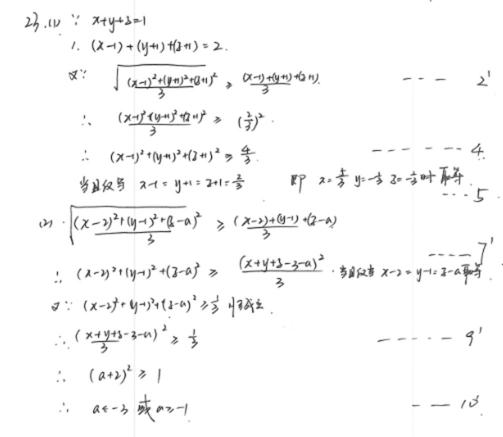 23.(1) ∵ x+y+z=1
∴ (x-1)+(y+1)+(z+1)=2.
又∵ √((x-1)²+(y+1)²+(z+1)²)/3 ≥ (x-1)+(y+1)+(z+1)/3. --- 2'
∴ (x-1)²+(y+1)²+(z+1)²/3 ≥ (2/3)².
∴ (x-1)²+(y+1)²+(z+1)² ≥ 4/3. ------ 4
当且仅当 x-1=y+1=z+1=2/3 即 x=5/3 y=-1/3 z=-1/3时 取等. --- 5
(2) ∵ √((x-2)²+(y-1)²+(z-a)²)/3 ≥ (x-2)+(y-1)+(z-a)/3
∴ (x-2)²+(y-1)²+(z-a)² ≥ (x+y+z-3-a)²/3. 当且仅当 x-2=y-1=z-a取等 ---- 7'
又∵ (x-2)²+(y-1)²+(z-a)² ≥ 1/3 恒成立
∴ (x+y+z-3-a)²/3 ≥ 1/3 ----- 9'
∴ (a+2)² ≥ 1
∴ a≤-3 或 a≥-1 --- 10'